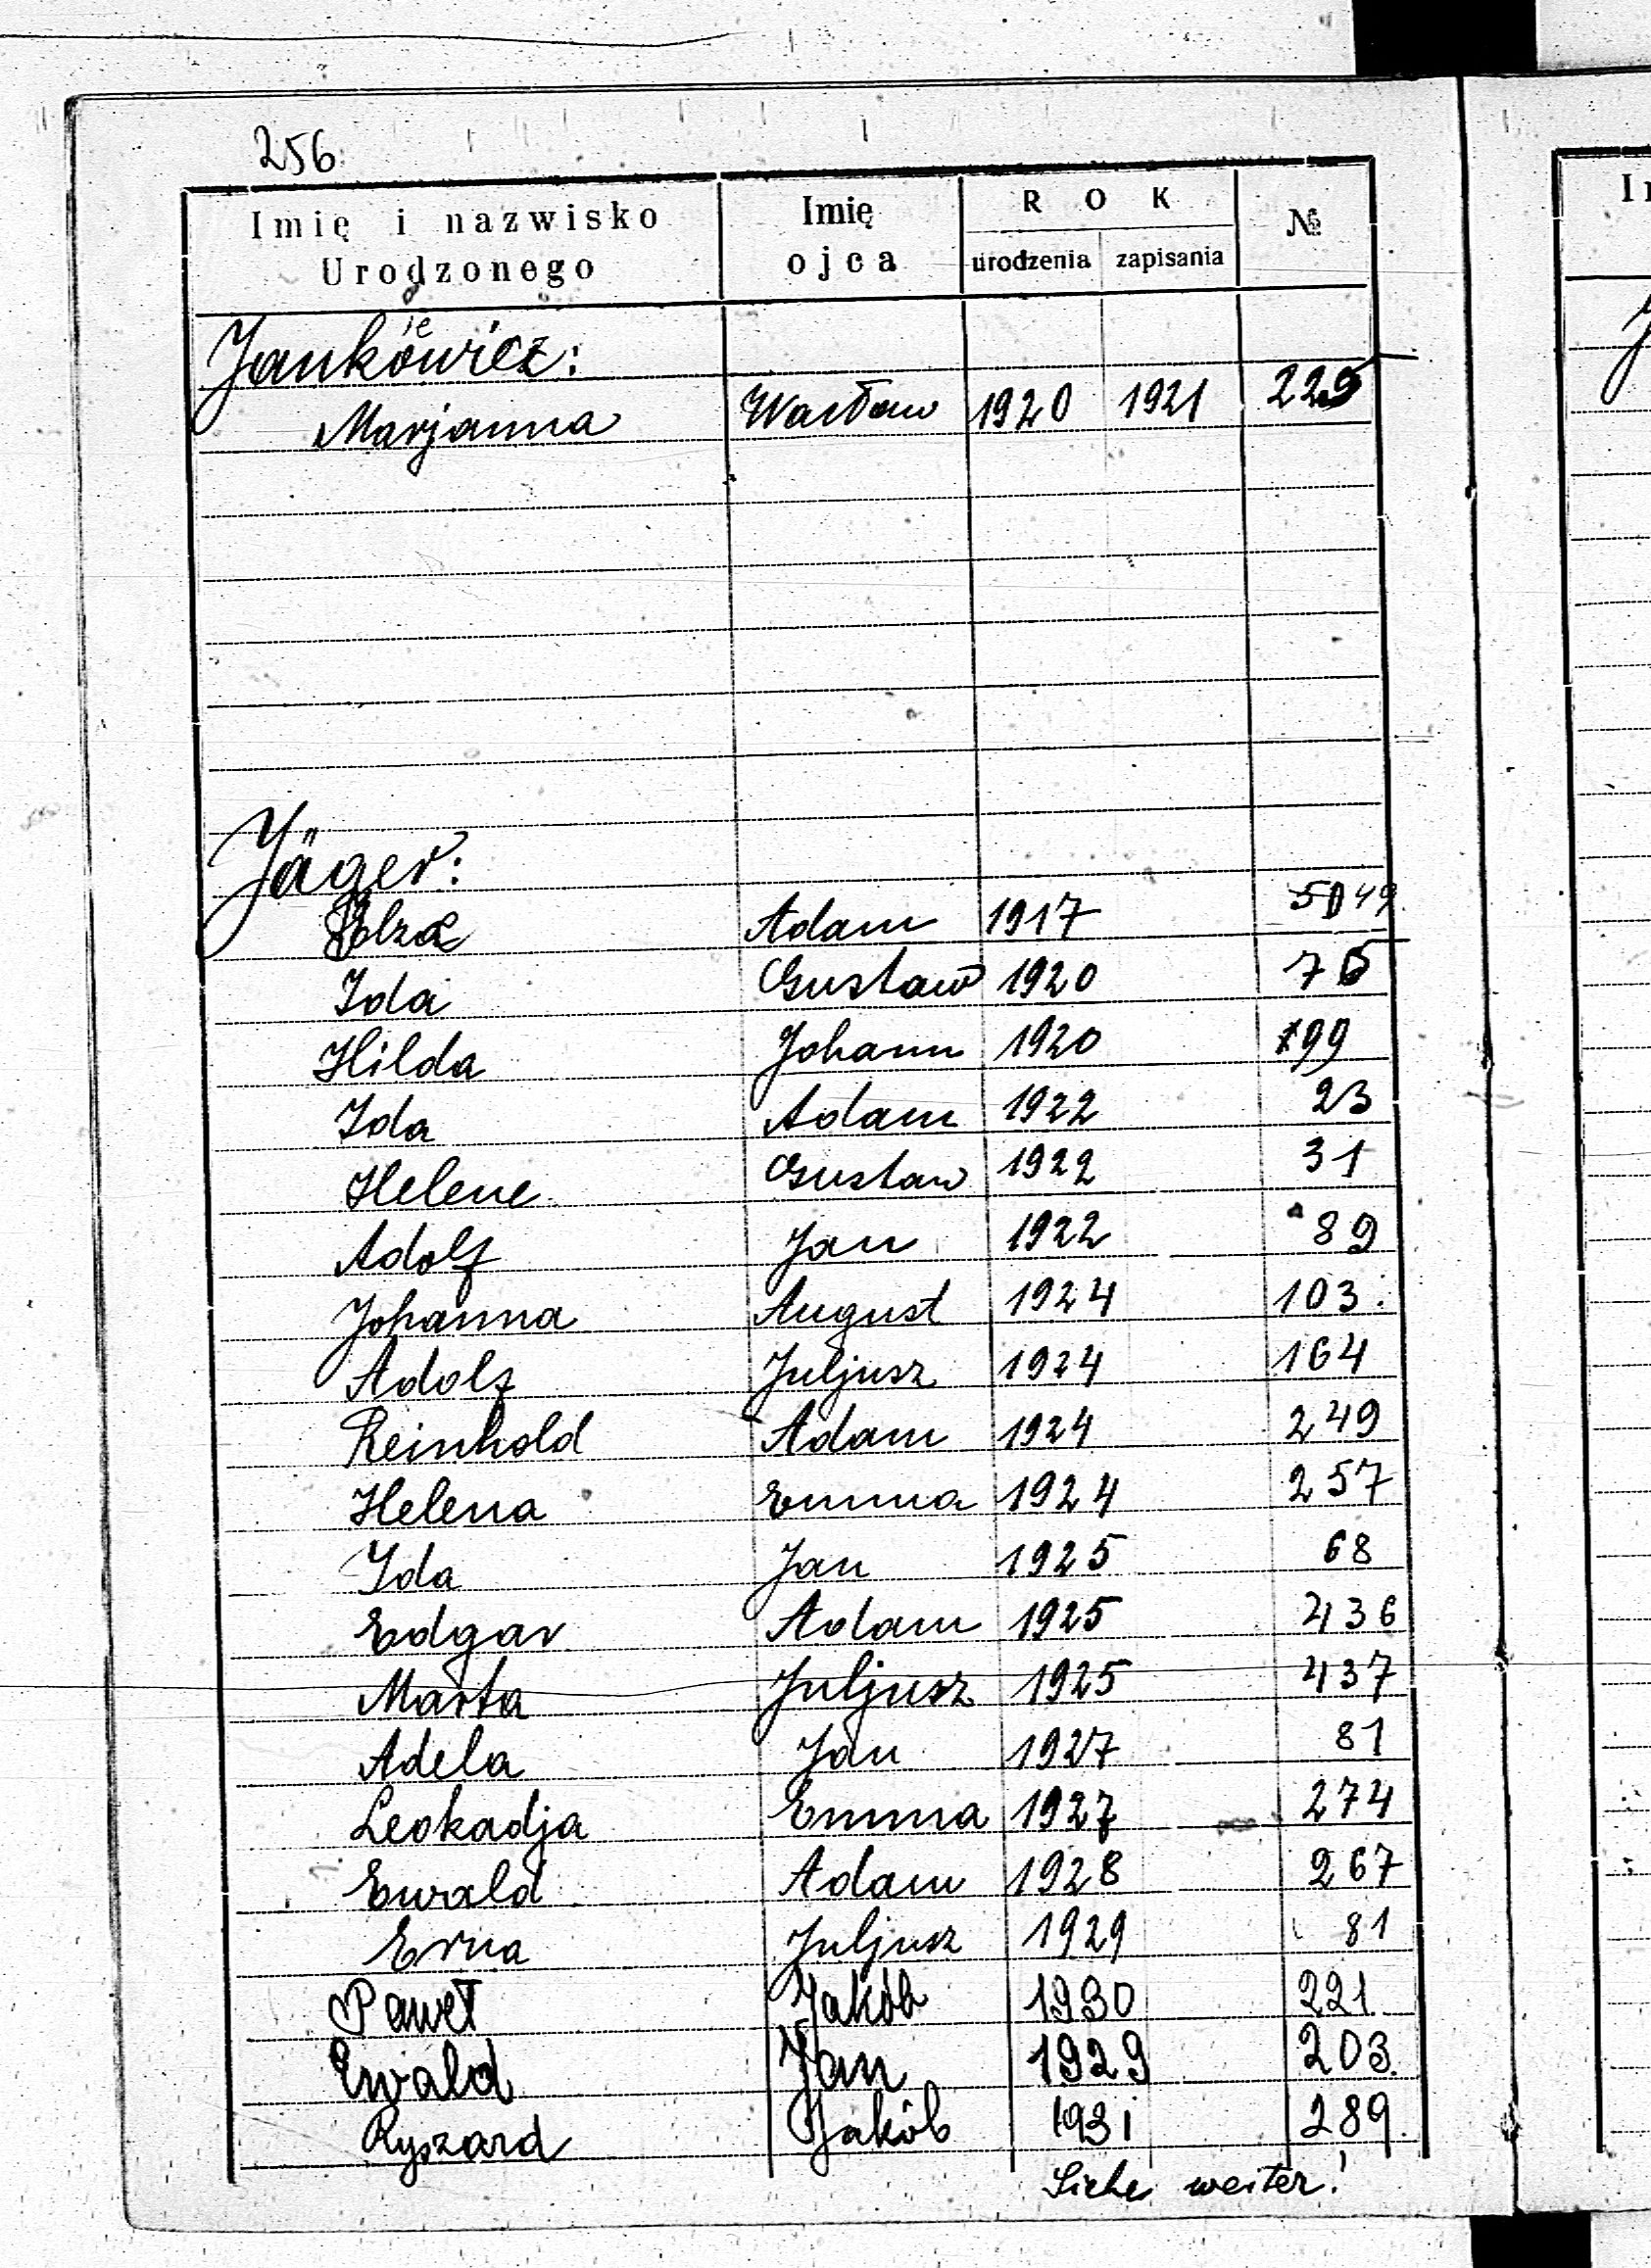 256
Imię i nazwisko Urodzonego Imię ojca ROK urodzenia zapisania №
Jankowicz:
ie
Marjanna Wacław 1920 1921 229
Jäger:
Elza Adam 1917 49
Ida Gustaw 1920 76
Hilda Johann 1920 199
Ida Adam 1922 23
Helene Gustaw 1922 31
Adolf Jan 1922 89
Johanna August 1924 103
Adolf Juljusz 1924 164
Reinhold Adam 1924 249
Helena Emma 1924 257
Ida Jan 1925 68
Edgar Adam 1925 436
Marta Juljusz 1925 437
Adela Jan 1927 81
Leokadja Emma 1927 274
Ewald Adam 1928 267
Erna Juljusz 1929 81
Paweł Jakób 1930 221
Ewald Jan 1929 203
Ryszard Jakób 1931 289
Siehe weiter!